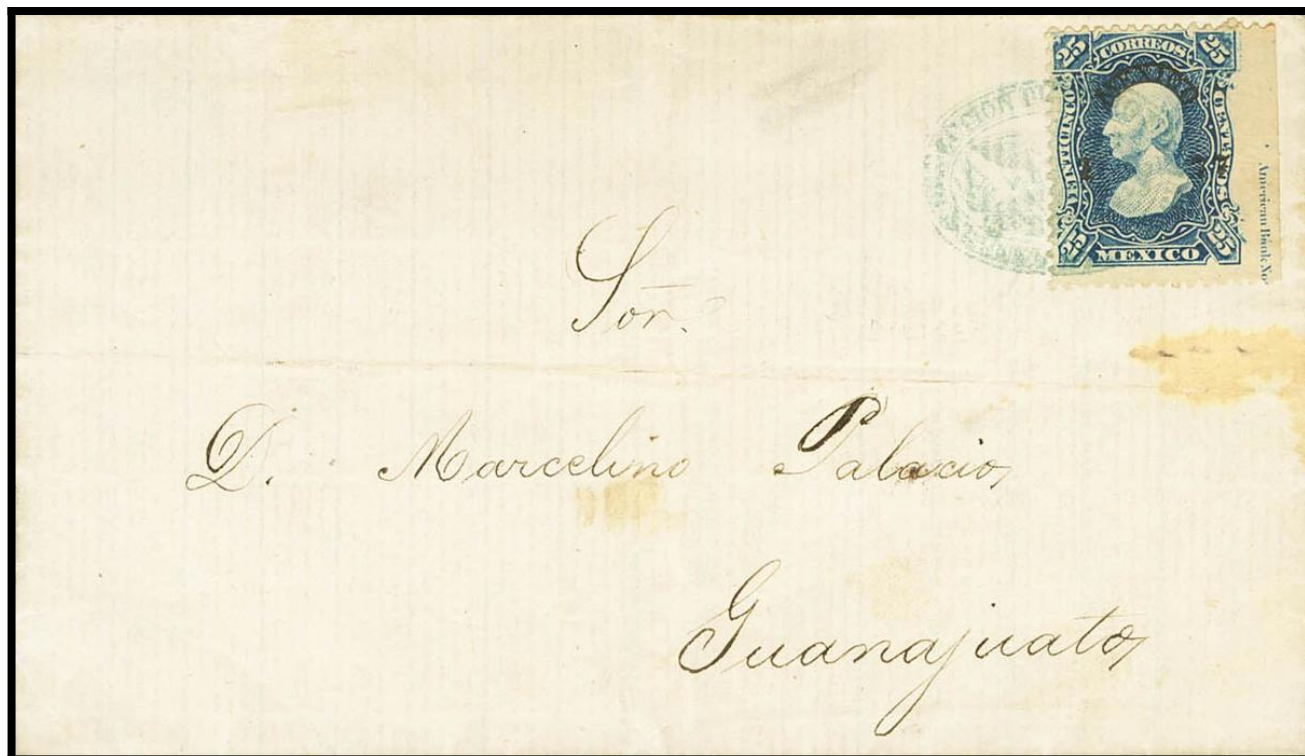 25 CORREOS 25
VEINTICINCO
CENTAVOS
25 MEXICO 25
American Bank No
Sor.
D. Marcelino Palacio,
Guanajuato,